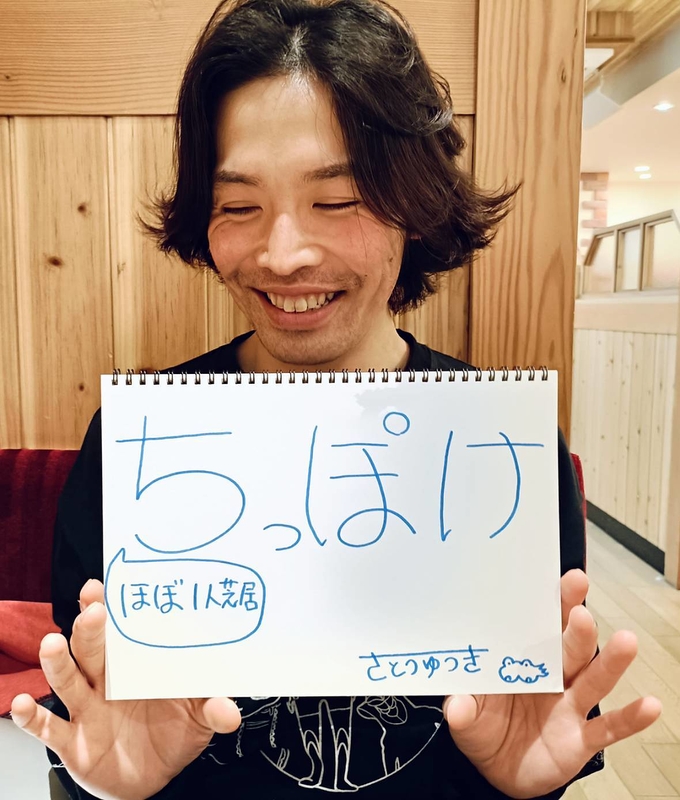 ちっぽけ
ほぼ1人芝居
さとつゆつき